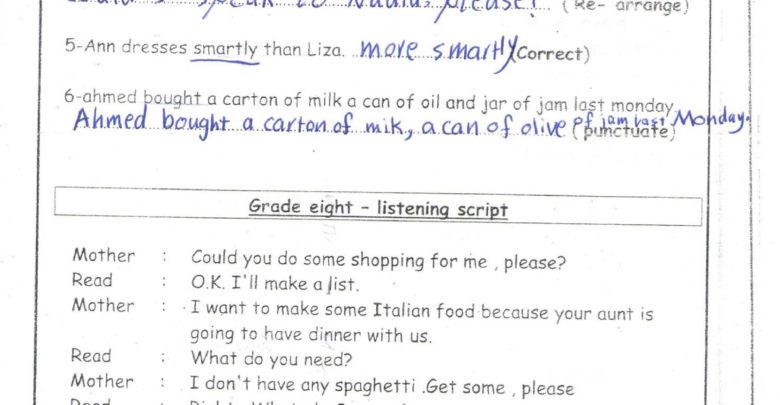 speak to please! (Re- arrange)
5-Ann dresses smartly than Liza. more smartly (Correct)
6-ahmed bought a carton of milk a can of oil and jar of jam last monday
Ahmed bought a carton of mik, a can of olive of jam last Monday.
(punctuate)
Grade eight - listening script
Mother : Could you do some shopping for me , please?
Read : O.K. I'll make a list.
Mother : I want to make some Italian food because your aunt is
going to have dinner with us.
Read : What do you need?
Mother : I don't have any spaghetti .Get some , please